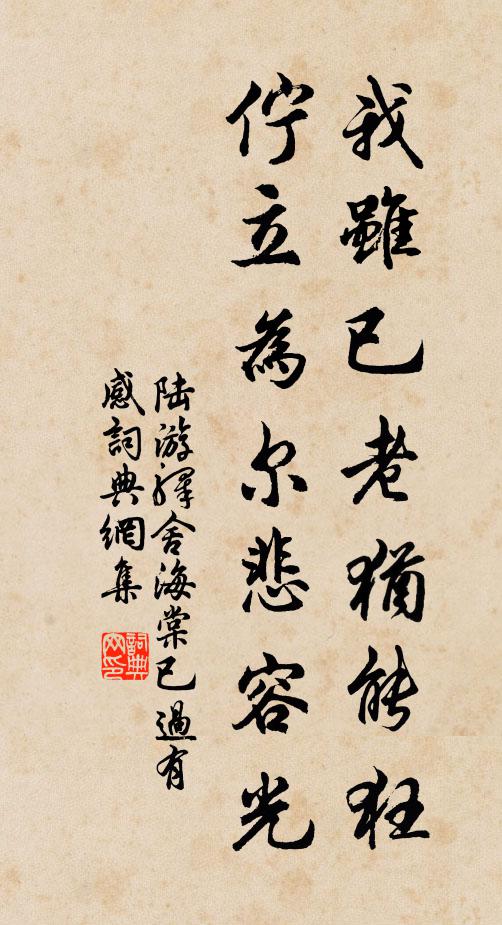 我雖已老猶能狂
佇立為尔悲容光
陆游驛舍海棠已過有
感詞典網集
詞典网印